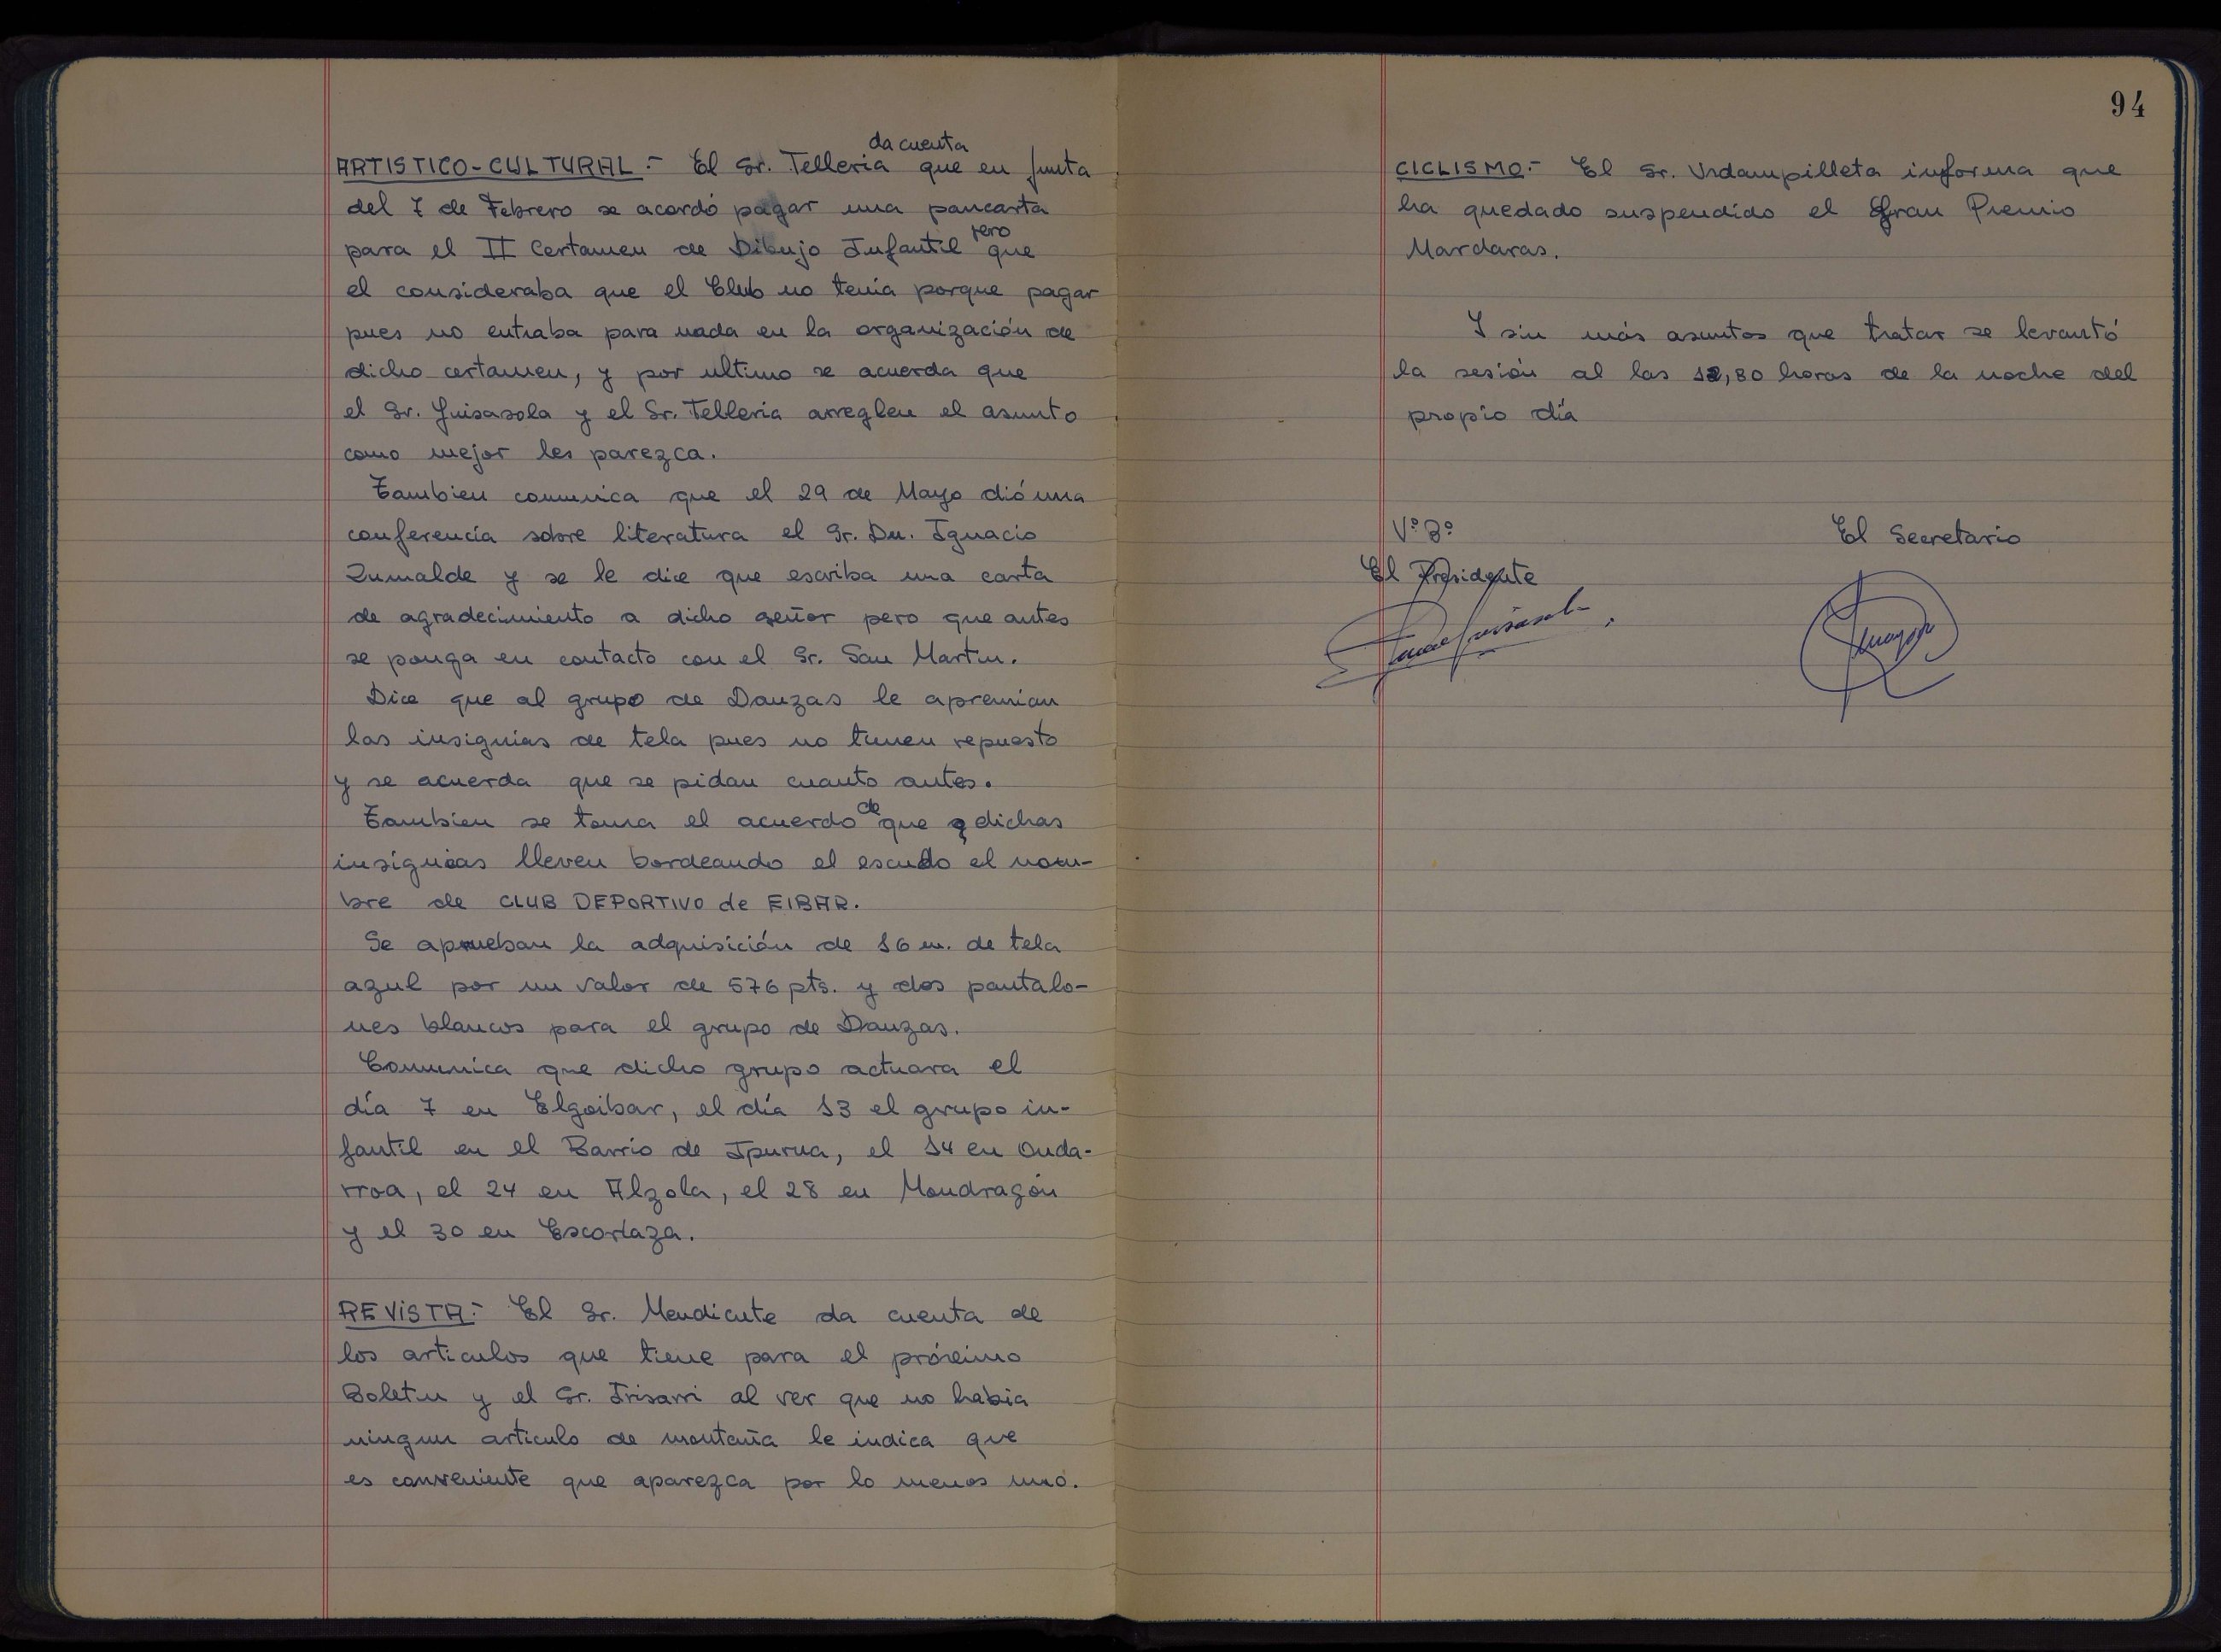 ARTISTICO-CULTURAL.- El Sr. Telleria da cuenta que en Junta
del 7 de Febrero se acordó pagar una pancarta
para el II Certamen de Dibujo Infantil pero que
el consideraba que el Club no tenía porque pagar
pues no entraba para nada en la organización de
dicho certamen, y por ultimo se acuerda que
el Sr. Guisasola y el Sr. Telleria arreglen el asunto
como mejor les parezca.
Tambien comunica que el 29 de Mayo dió una
conferencia sobre literatura el Sr. Dn. Ignacio
Zumalde y se le dice que escriba una carta
de agradecimiento a dicho señor pero que antes
se ponga en contacto con el Sr. San Martin.
Dice que al grupo de Danzas le apremian
las insignias de tela pues no tienen repuesto
y se acuerda que se pidan cuanto antes.
Tambien se toma el acuerdo de que dichas
insignias lleven bordeando el escudo el nom-
bre de CLUB DEPORTIVO de EIBAR.
Se aprueban la adquisición de 16 m. de tela
azul por un valor de 576 pts. y dos pantalo-
nes blancos para el grupo de Danzas.
Comunica que dicho grupo actuara el
día 7 en Elgoibar, el día 13 el grupo in-
fantil en el Barrio de Ipurua, el 14 en Onda-
rroa, el 24 en Alzola, el 28 en Mondragón
y el 30 en Escoriaza.
REVISTA.- El Sr. Mendicute da cuenta de
los articulos que tiene para el próximo
Boletin y el Sr. Irisarri al ver que no habia
ningun articulo de montaña le indica que
es conveniente que aparezca por lo menos uno.
94
CICLISMO.- El Sr. Urdampilleta informa que
ha quedado suspendido el Gran Premio
Mardaras.
Y sin más asuntos que tratar se levantó
la sesión al las 12,30 horas de la noche del
propio día
Vº Bº
El Presidente
El Secretario